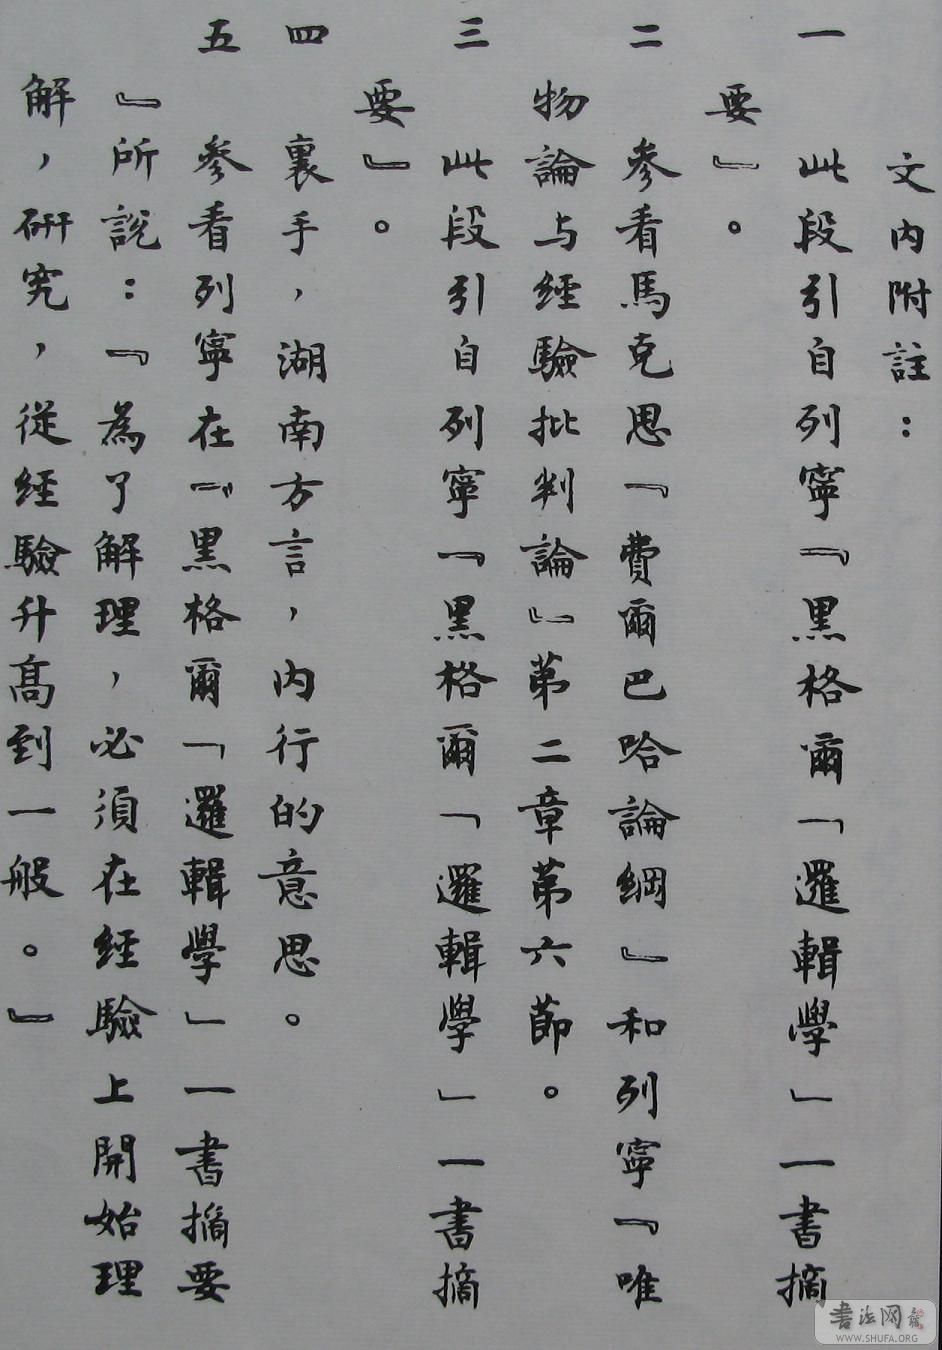 文内附註：
一　此段引自列寧『黑格爾「邏輯學」一書摘
要』。
二　參看馬克思「費爾巴哈論綱」和列寧『唯
物論与經驗批判論』第二章第六節。
三　此段引自列寧『黑格爾「邏輯學」一書摘
要』。
四　裏手，湖南方言，内行的意思。
五　參看列寧在『黑格爾「邏輯學」一書摘要
』所說：『為了解理，必須在經驗上開始理
解，研究，從經驗升高到一般。』
書法网
WWW.SHUFA.ORG